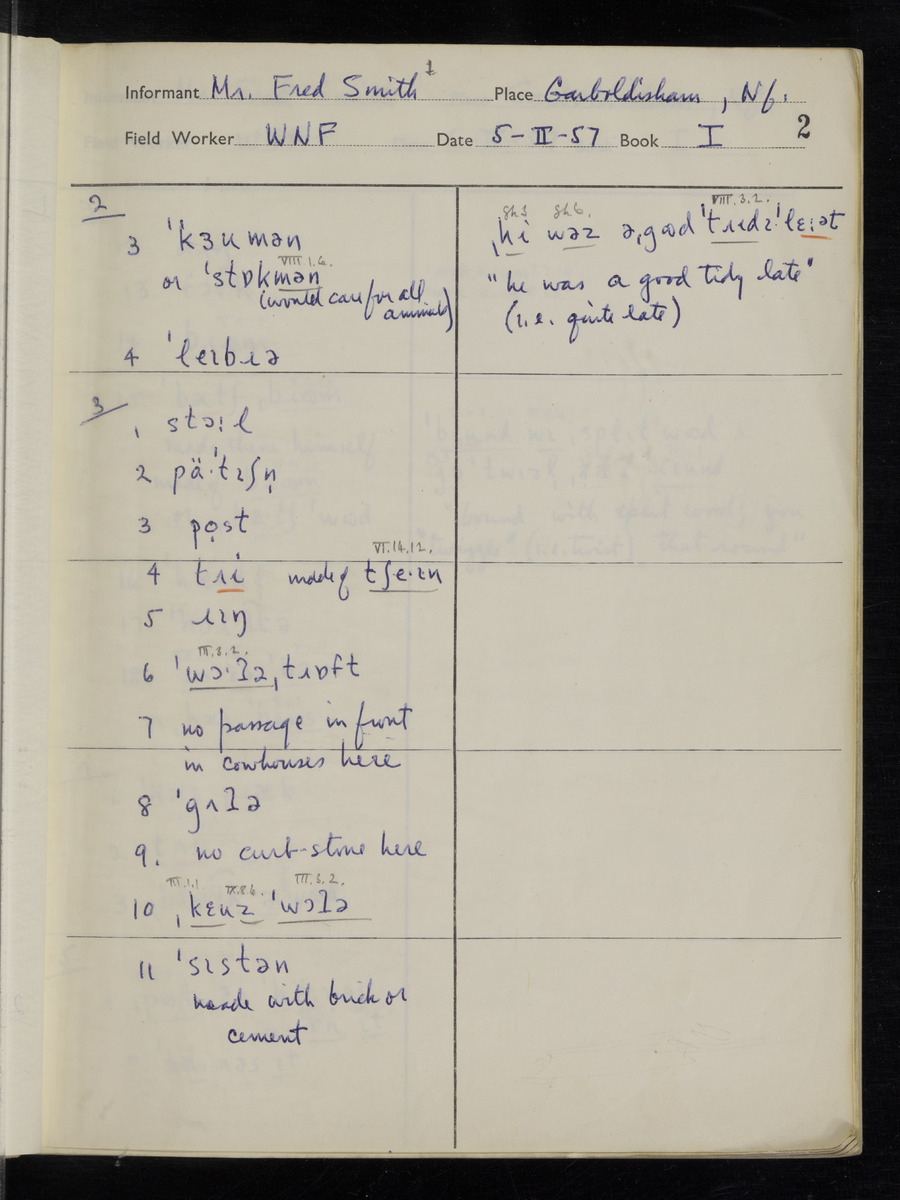 Informant Mr. Fred Smith 1 Place Garboldisham, Nf.
Field Worker WNF Date 5-II-57 Book I 2
2
3 ˈkɜumən
VIII.1.6.
or ˈstɒkmən
(would care for all
animals)
4 ˈleɪbɹə
3
1 stɔːl
2 pä·ˈtɪʃn̩
3 po̜st
VI.14.12.
4 tɹi made of tʃe·ɪn
5 ɹɪŋ
III.3.2.
6 ˈwɔ·ʔə ˌtɹɒft
7 no passage in front
in cowhouses here
8 ˈgʌʔə
9. no curb-stone here
III.1.1 IX.8.6. III.3.2.
10 ˌkɛuz ˈwɔʔə
11 ˈsɪstən
made with brick or
cement
VIII.3.2.
ˌhi wəz əˌgood ˈtɹɪdɪ ˈlɛːət
"he was a good tidy late"
(i.e. quite late)